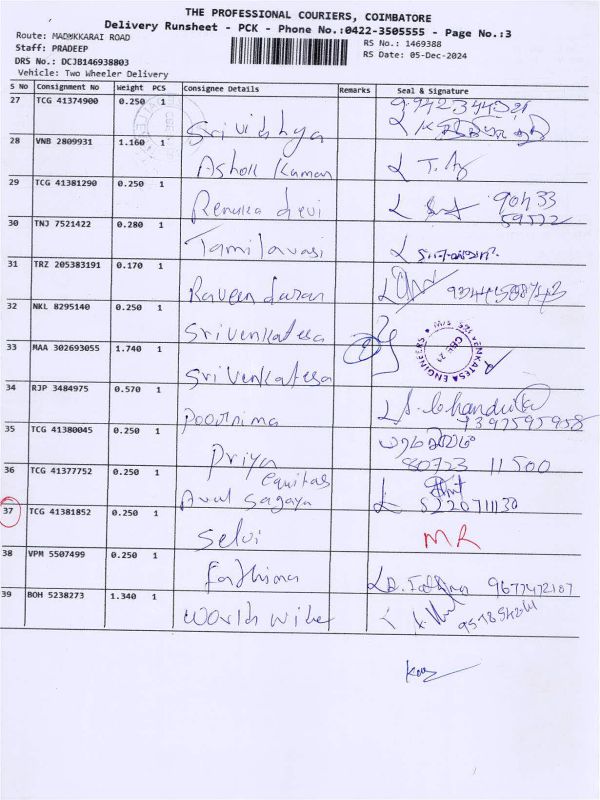 THE PROFESSIONAL COURIERS, COIMBATORE
Delivery Runsheet - PCK - Phone No.:0422-3505555 - Page No.:3
Route: MADUKKARAI ROAD
RS No.: 1469388
Staff: PRADEEP
RS Date: 05-Dec-2024
DRS No.: DCJB146938803
Vehicle: Two Wheeler Delivery
S No Consignment No Weight PCS Consignee Details Remarks Seal & Signature
27 TCG 41374900 0.250 1
Srividhya
28 VNB 2809931 1.160 1
Ashok Kumar
29 TCG 41381290 0.250 1
Renuka devi
30 TNJ 7521422 0.280 1
Tamilavasi
31 TRZ 205383191 0.170 1
Raveendaran
32 NKL 8295140 0.250 1
Srivenkatesa
M/s. SRI VENKATESA ENGINEERS
CBE 21
33 MAA 302693055 1.740 1
Srivenkatesa
34 RJP 3484975 0.570 1
Poornima
35 TCG 41380045 0.250 1
Priya 80723 11500
36 TCG 41377752 0.250 1
equitas
Arul Sagaya
37 TCG 41381852 0.250 1
Selvi MR
38 VPM 5507499 0.250 1
Fathima
39 BOH 5238273 1.340 1
World wide